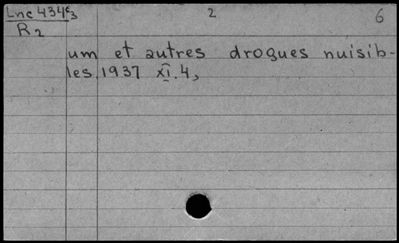 Lnc 434c3 2 6
R2
um et autres drogues nuisib-
les. 1937 XI. 4,